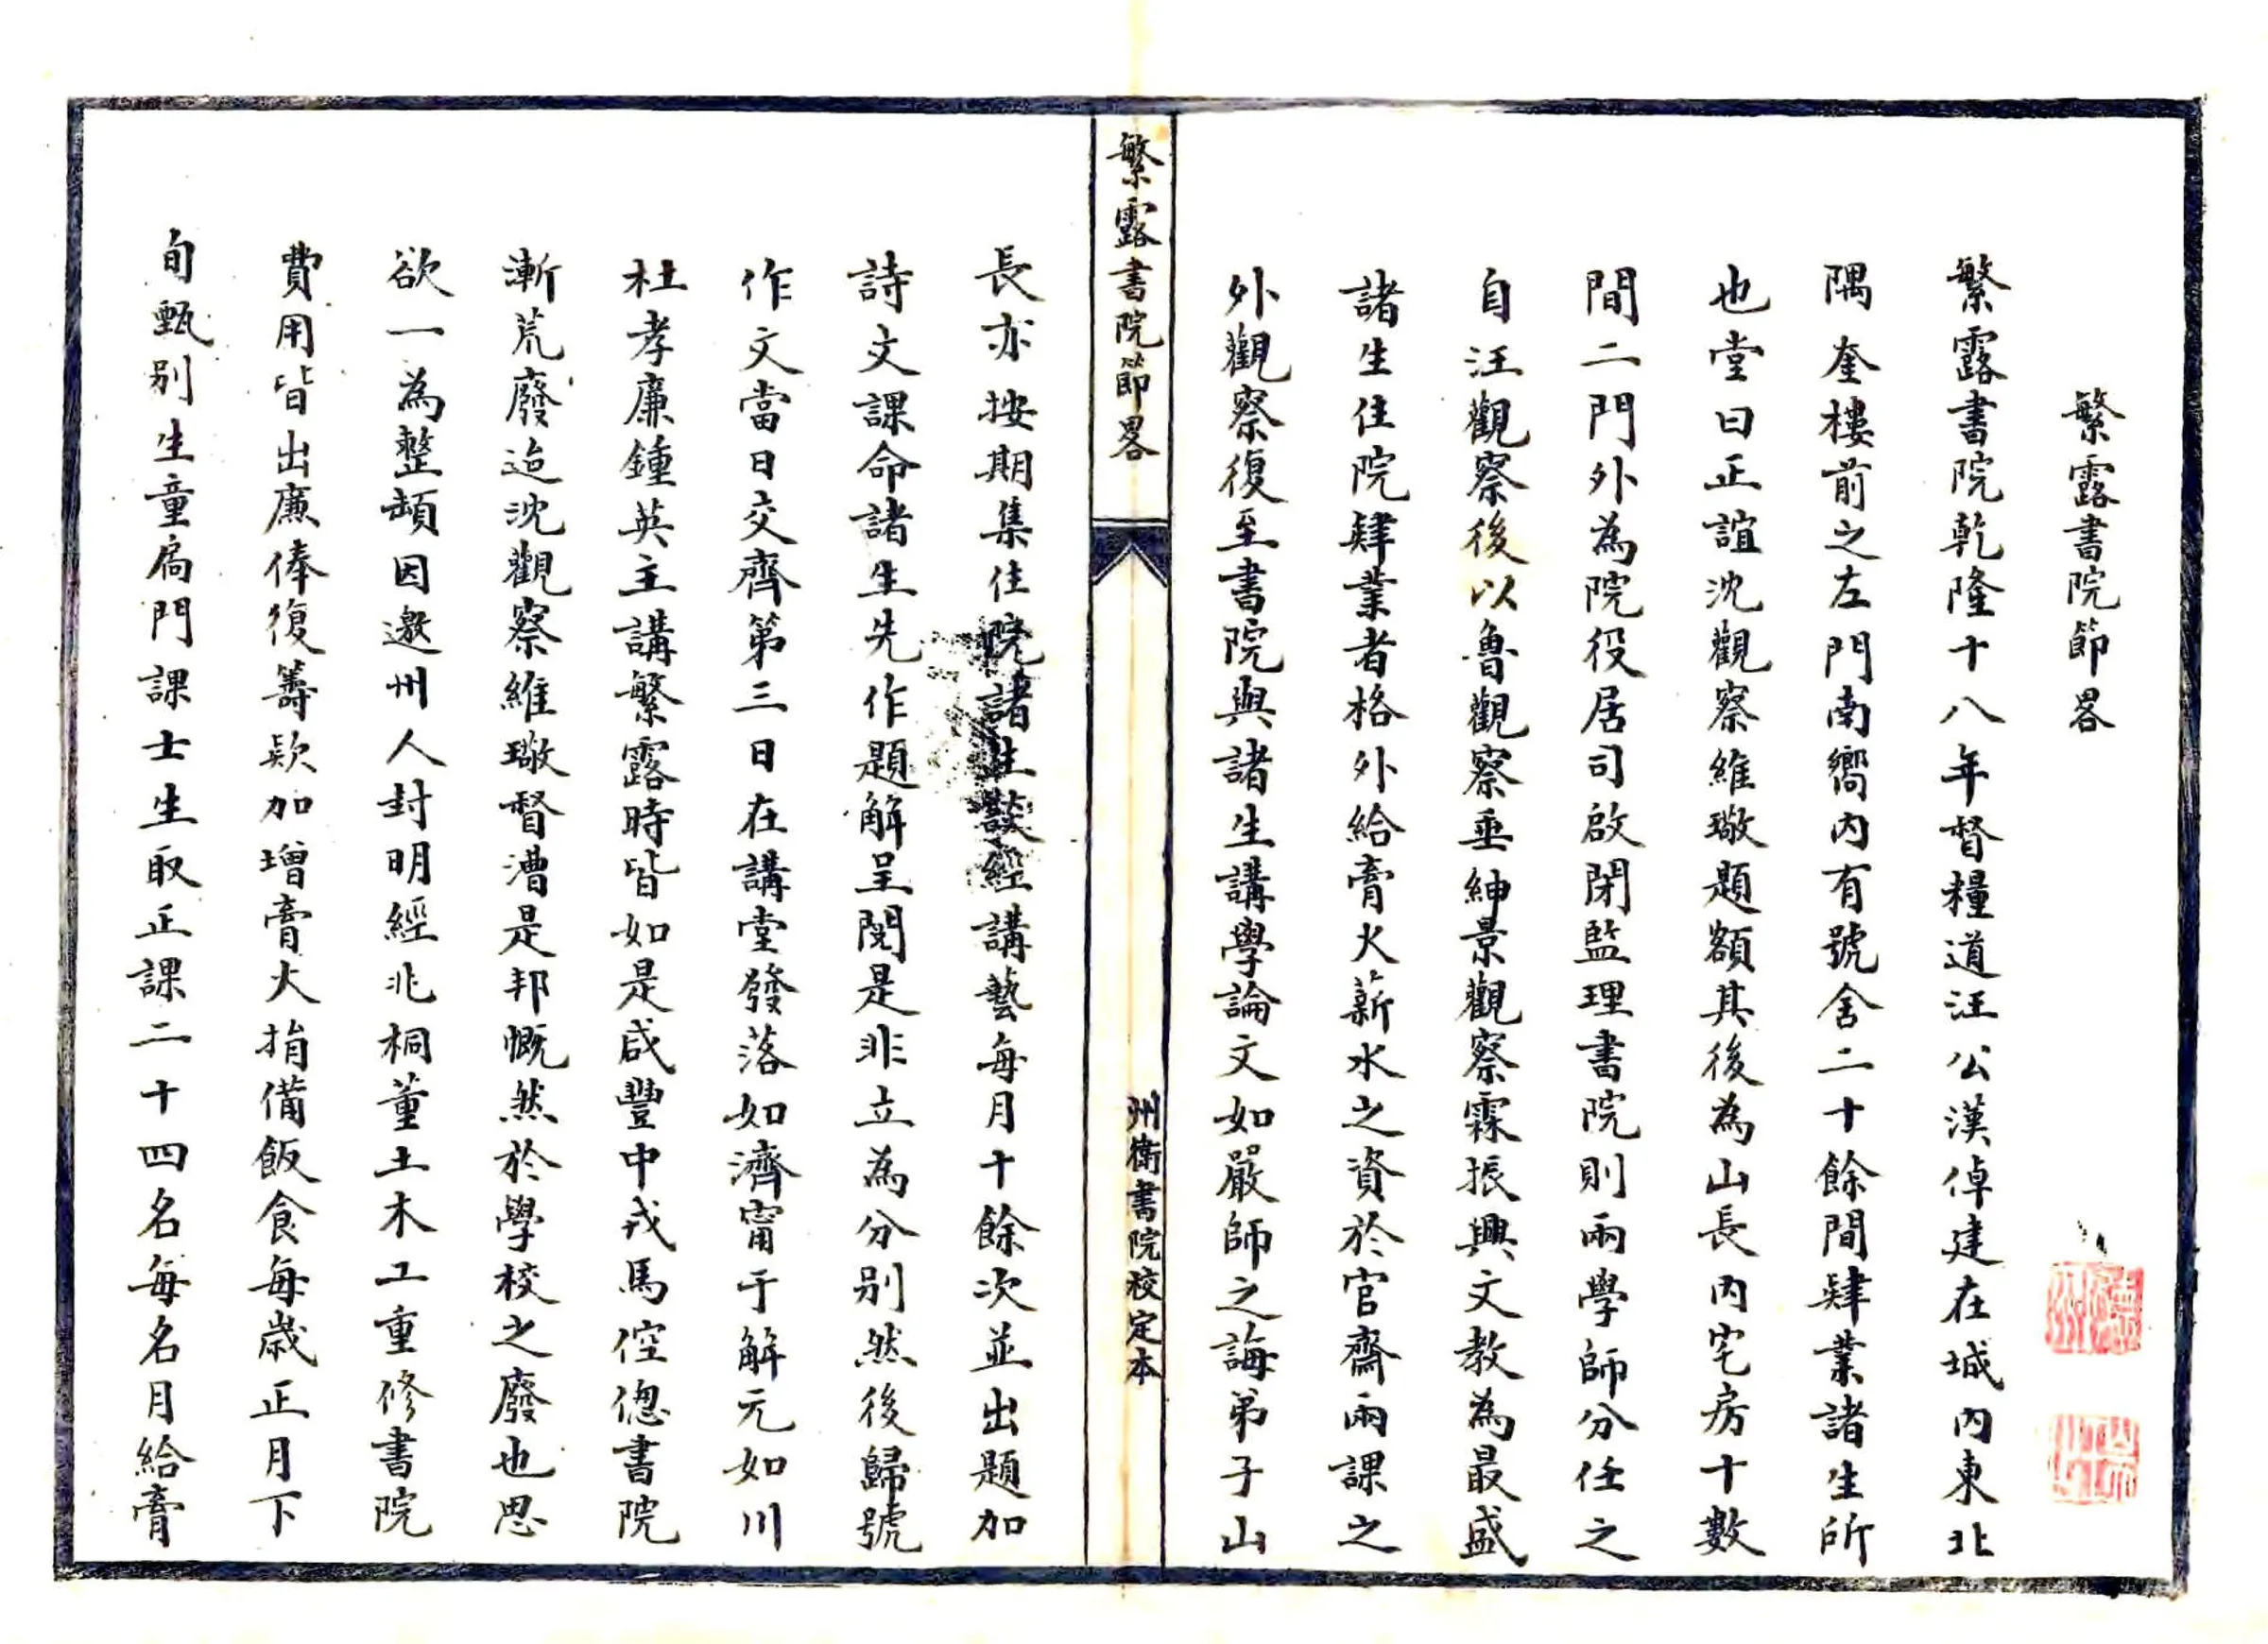 繁露書院節畧
繁露書院乾隆十八年督糧道汪公漢倬建在城內東北
隅奎樓前之左門南嚮內有號舍二十餘間肄業諸生所
也堂曰正誼沈觀察維璥題額其後為山長內宅房十數
間二門外為院役居司啟閉監理書院則兩學師分任之
自汪觀察後以魯觀察垂紳景觀察霖振興文教為最盛
諸生住院肄業者格外給膏火薪水之資於官齋兩課之
外觀察復至書院與諸生講學論文如嚴師之誨弟子山
繁露書院節畧
州衛書院校定本
長亦按期集住院諸生談經講藝每月十餘次並出題加
詩文課命諸生先作題解呈閱是非立為分別然後歸號
作文當日交齊第三日在講堂發落如濟甯于解元如川
杜孝廉鍾英主講繁露時皆如是咸豐中戎馬倥傯書院
漸荒廢迨沈觀察維璥督漕是邦慨然於學校之廢也思
欲一為整頓因邀州人封明經兆桐董土木工重修書院
費用皆出廉俸復籌欵加增膏火捐備飯食每歲正月下
旬甄別生童扃門課士生取正課二十四名每名月給膏